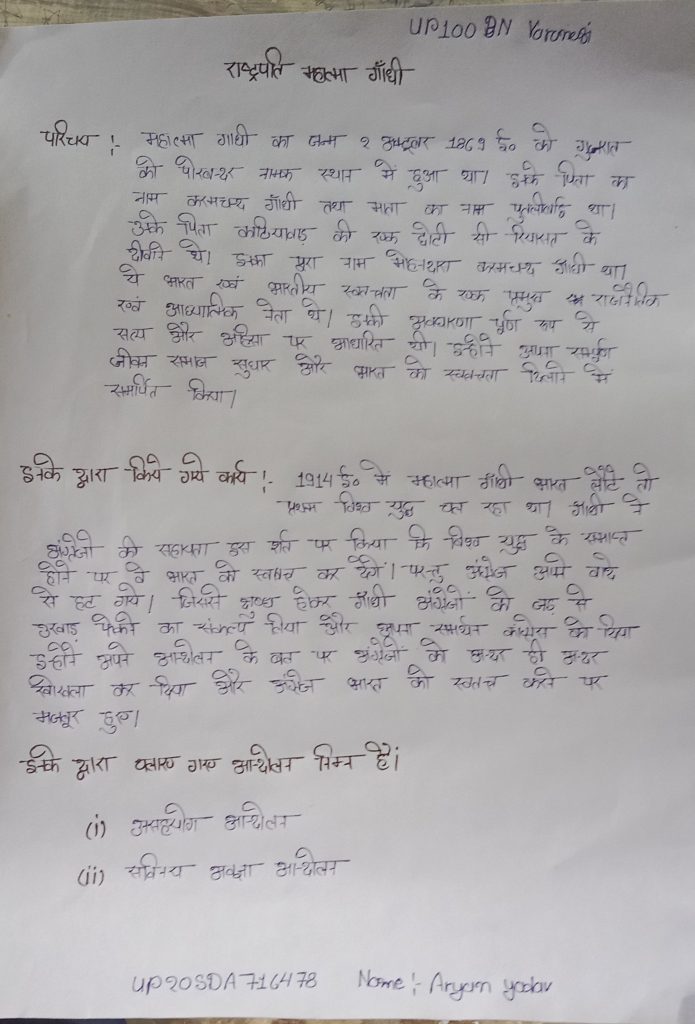 UP100 BN Varanasi
राष्ट्रपति महात्मा गाँधी
परिचय :- महात्मा गांधी का जन्म २ अक्टूबर 1869 ई० को गुजरात
को पोरबन्दर नामक स्थान में हुआ था। इनके पिता का
नाम करमचन्द गाँधी तथा माता का नाम पुतलीबाई था।
उनके पिता काठियावाड़ की एक छोटी सी रियासत के
दीवान थे। इनका पुरा नाम मोहनदास करमचन्द गाँधी था।
ये भारत एवं भारतीय स्वतंत्रता के एक प्रमुख राजनैतिक
एवं आध्यात्मिक नेता थे। इनकी अवधारणा पूर्ण रूप से
सत्य और अहिंसा पर आधारित थी। इन्होंने अपना सम्पूर्ण
जीवन समाज सुधार और भारत को स्वतंत्रता दिलाने में
समर्पित किया।
इनके द्वारा किये गये कार्य :- 1914 ई० में महात्मा गाँधी भारत लौटे तो
प्रथम विश्व युद्ध चल रहा था। गाँधी ने
अंग्रेजो की सहायता इस शर्त पर किया कि विश्व युद्ध के समाप्त
होने पर वे भारत को स्वतंत्र कर देंगे। परन्तु अंग्रेज अपने वादे
से हट गये। जिससे क्षुब्ध होकर गाँधी अंग्रेजों को जड़ से
उखाड़ फेंकने का संकल्प लिया और अपना समर्थन कांग्रेस को दिया
इन्होंने अपने आन्दोलन के बल पर अंग्रेजों को अन्दर ही अन्दर
खोखला कर दिया और अंग्रेज भारत को स्वतंत्र करने पर
मजबूर हुए।
इनके द्वारा चलाए गए आन्दोलन निम्न हैं।
(i) असहयोग आन्दोलन
(ii) सविनय अवज्ञा आन्दोलन
UP20SDA716478 Name :- Aryan yadav